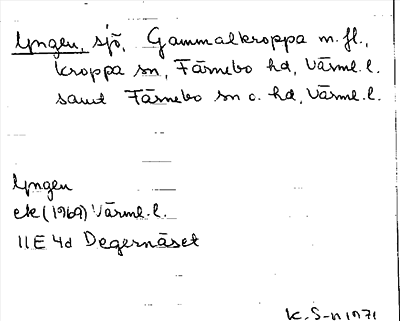 Yngen, sjö, Gammalkroppa m.fl.,
Kroppa sn, Färnebo hd, Värml.l.
samt Färnebo sn o. hd, Värml.l.
Yngen
ek (1969) Värml.l.
11E 4d Degernäset
K.S-n 1971